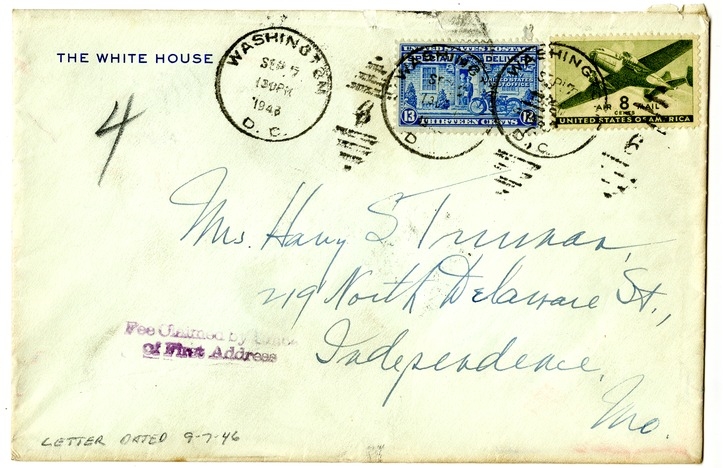 THE WHITE HOUSE
WASHINGTON
SEP 7
130PM
1946
D. C.
UNITED STATES POSTAGE
UNITED STATES
POST OFFICE
13 THIRTEEN CENTS
AIR 8 MAIL
CENTS
UNITED STATES OF AMERICA
4
Mrs. Harry S. Truman,
219 North Delaware St.,
Independence,
Mo.
Fee Claimed by
of First Address
LETTER DATED 9-7-46